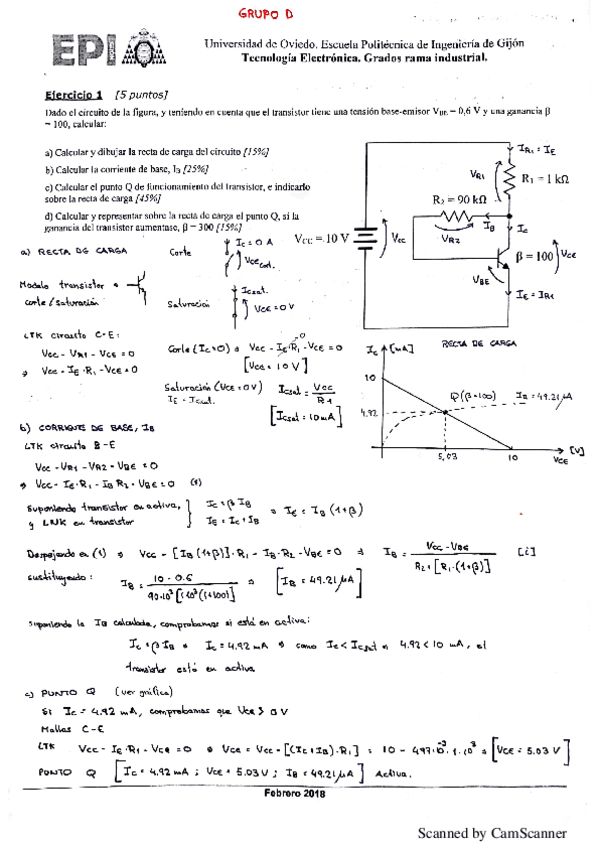 GRUPO D
EPI
Universidad de Oviedo. Escuela Politécnica de Ingeniería de Gijón
Tecnología Electrónica. Grados rama industrial.
Ejercicio 1 [5 puntos]
Dado el circuito de la figura, y teniendo en cuenta que el transistor tiene una tensión base-emisor VBE = 0,6 V y una ganancia β
= 100, calcular:
a) Calcular y dibujar la recta de carga del circuito [15%]
b) Calcular la corriente de base, IB [25%]
c) Calcular el punto Q de funcionamiento del transistor, e indicarlo
sobre la recta de carga [45%]
d) Calcular y representar sobre la recta de carga el punto Q, si la
ganancia del transistor aumentase, β = 300 [15%]
IR1 = IE
VR1
R1 = 1 kΩ
R2 = 90 kΩ
VR2
IB
Ic
VCC = 10 V
Vcc
β = 100
VCE
VBE
IE = IR1
a) RECTA DE CARGA
Corte
Ic = 0 A
VCE cort.
Modelo transistor
corte / saturación
Saturación
Ic sat.
VCE = 0 V
LTK circuito C-E:
Vcc - VR1 - VCE = 0
⇒ Vcc - IE · R1 - VCE = 0
Corte (Ic = 0) ⇒ Vcc - IE · R1 - VCE = 0
0
[VCE = 10 V]
Saturación (VCE = 0 V)
IE = Ic sat.
Ic sat = Vcc / R1
[Ic sat = 10 mA]
Ic [mA]
RECTA DE CARGA
10
4.92
Q (β=100)
IB = 49.21 μA
5,03
10
VCE
[V]
b) CORRIENTE DE BASE, IB
LTK circuito B-E
Vcc - VR1 - VR2 - VBE = 0
⇒ Vcc - IE · R1 - IB R2 - VBE = 0 (1)
Suponiendo transistor en activa,
y LNK en transistor
Ic = β IB
IE = Ic + IB
⇒ IE = IB (1+β)
Despejando en (1) ⇒ Vcc - [IB (1+β)] · R1 - IB · R2 - VBE = 0 ⇒ IB = Vcc - VBE / R2 + [R1 · (1+β)] [i]
sustituyendo: IB = 10 - 0.6 / 90·10³ [1·10³ (1+100)] ⇒ [IB = 49.21 μA]
Suponiendo la IB calculada, comprobamos si está en activa:
Ic = β IB ⇒ Ic = 4.92 mA ⇒ como Ic < Ic sat ⇒ 4.92 < 10 mA, el
transistor está en activa
c) PUNTO Q (ver gráfica)
Si Ic = 4.92 mA, comprobamos que VCE > 0 V
Mallas C-E
LTK Vcc - IE · R1 - VCE = 0 ⇒ VCE = Vcc - [(Ic + IB) · R1] = 10 - 4.97·10⁻³ · 1·10³ = [VCE = 5.03 V]
PUNTO Q [Ic = 4.92 mA ; VCE = 5.03 V ; IB = 49.21 μA] Activa.
Febrero 2018
Scanned by CamScanner